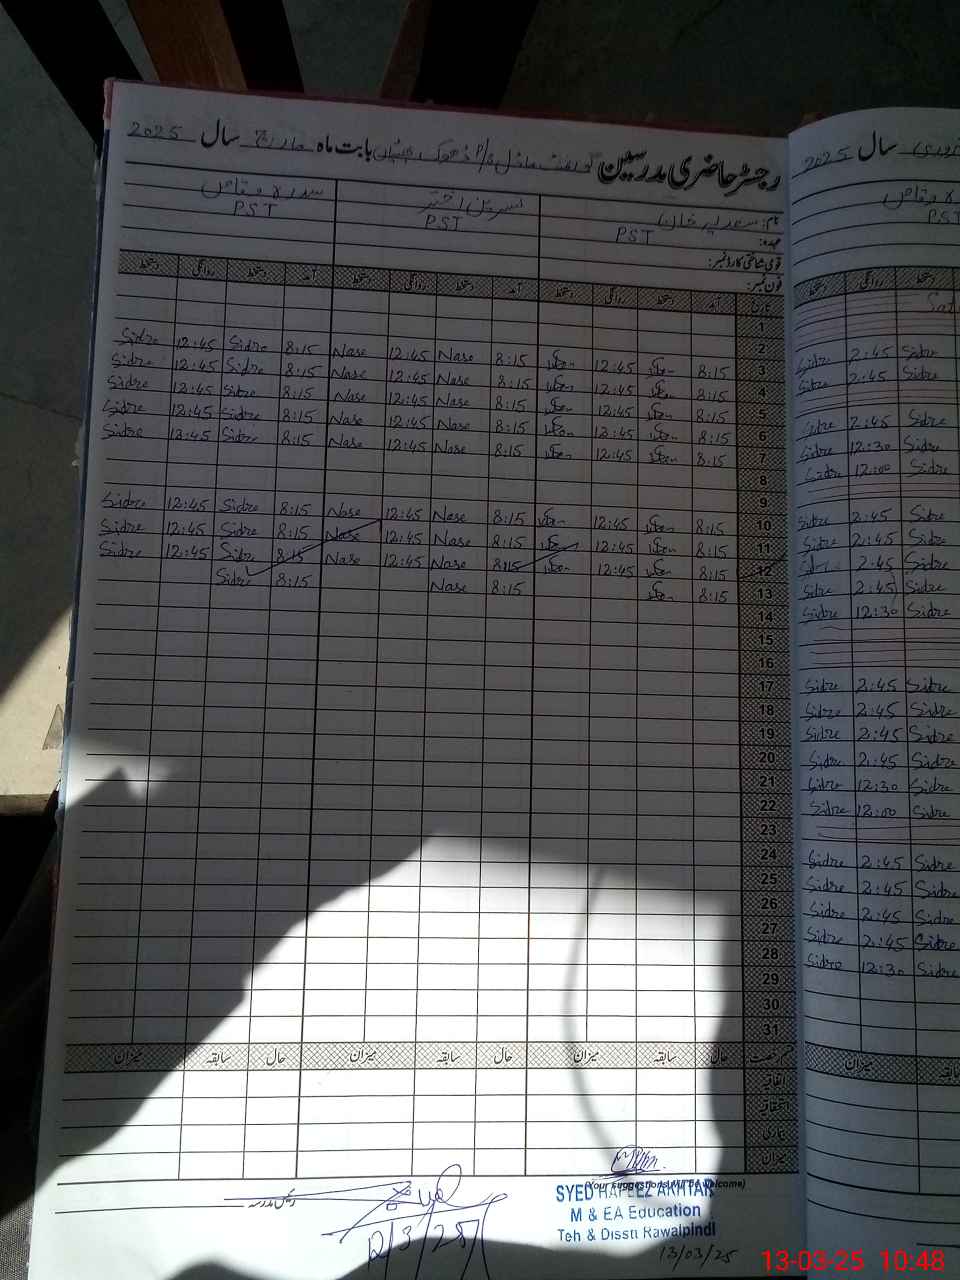 رجسٹر حاضری مدرسین گورنمنٹ ماڈل پ/S ڈھوک بابت ماہ مارچ سال 2025
نام: سعدیہ خان نسرین اختر سدرہ وقاص
عہدہ: PST PST PST
قومی شناختی کارڈ نمبر:
فون نمبر:
تاریخ آمد دستخط روانگی دستخط آمد دستخط روانگی دستخط آمد دستخط روانگی دستخط
1
2
Sidre 12:45 Sidre 8:15 Nase 12:45 Nase 8:15 12:45 8:15 3
Sidre 12:45 Sidre 8:15 Nase 12:45 Nase 8:15 12:45 8:15 4
Sidre 12:45 Sidre 8:15 Nase 12:45 Nase 8:15 12:45 8:15 5
Sidre 12:45 Sidre 8:15 Nase 12:45 Nase 8:15 12:45 8:15 6
Sidre 12:45 Sidre 8:15 Nase 12:45 Nase 8:15 12:45 8:15 7
8
9
Sidre 12:45 Sidre 8:15 Nase 12:45 Nase 8:15 12:45 8:15 10
Sidre 12:45 Sidre 8:15 Nase 12:45 Nase 8:15 12:45 8:15 11
Sidre 12:45 Sidre 8:15 Nase 12:45 Nase 8:15 12:45 8:15 12
Sidre 8:15 Nase 8:15 8:15 13
14
15
16
17
18
19
20
21
22
23
24
25
26
27
28
29
30
31
قسم رخصت حال سابقہ میزان حال سابقہ میزان حال سابقہ میزان
اتفاقیہ
استحقاقیہ
بیماری
میزان
رئیس مدرسہ
12/3/25
(Your Suggestions will be welcome)
SYED HAFEEZ AKHTAR
M & EA Education
Teh & Disstt Rawalpindi
13/03/25
سال 2025
وقاص
PST
دستخط روانگی دستخط
Sidre 2:45 Sidre
Sidre 2:45 Sidre
Sidre 2:45 Sidre
Sidre 12:30 Sidre
Sidre 12:00 Sidre
Sidre 2:45 Sidre
Sidre 2:45 Sidre
Sidre 2:45 Sidre
Sidre 2:45 Sidre
Sidre 12:30 Sidre
Sidre 2:45 Sidre
Sidre 2:45 Sidre
Sidre 2:45 Sidre
Sidre 2:45 Sidre
Sidre 12:30 Sidre
Sidre 12:00 Sidre
Sidre 2:45 Sidre
Sidre 2:45 Sidre
Sidre 2:45 Sidre
Sidre 2:45 Sidre
Sidre 12:30 Sidre
میزان
13-03-25 10:48